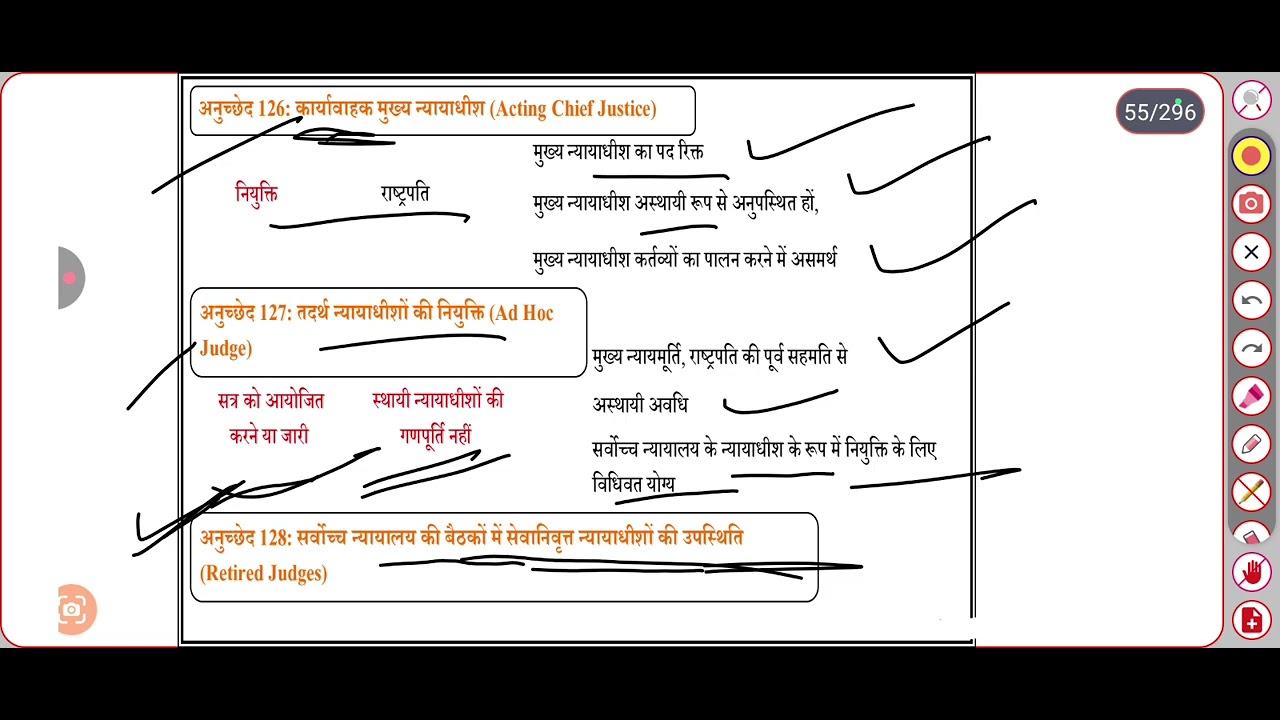 55/296
अनुच्छेद 126: कार्यावाहक मुख्य न्यायाधीश (Acting Chief Justice)
मुख्य न्यायाधीश का पद रिक्त
नियुक्ति राष्ट्रपति
मुख्य न्यायाधीश अस्थायी रूप से अनुपस्थित हों,
मुख्य न्यायाधीश कर्तव्यों का पालन करने में असमर्थ
अनुच्छेद 127: तदर्थ न्यायाधीशों की नियुक्ति (Ad Hoc
Judge)
मुख्य न्यायमूर्ति, राष्ट्रपति की पूर्व सहमति से
सत्र को आयोजित
करने या जारी
स्थायी न्यायाधीशों की
गणपूर्ति नहीं
अस्थायी अवधि
सर्वोच्च न्यायालय के न्यायाधीश के रूप में नियुक्ति के लिए
विधिवत योग्य
अनुच्छेद 128: सर्वोच्च न्यायालय की बैठकों में सेवानिवृत्त न्यायाधीशों की उपस्थिति
(Retired Judges)